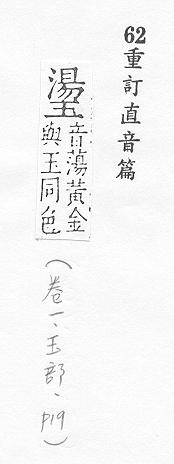 62重訂直音篇
璗
音蕩黃金
與玉同色
(卷一、玉部、p19)